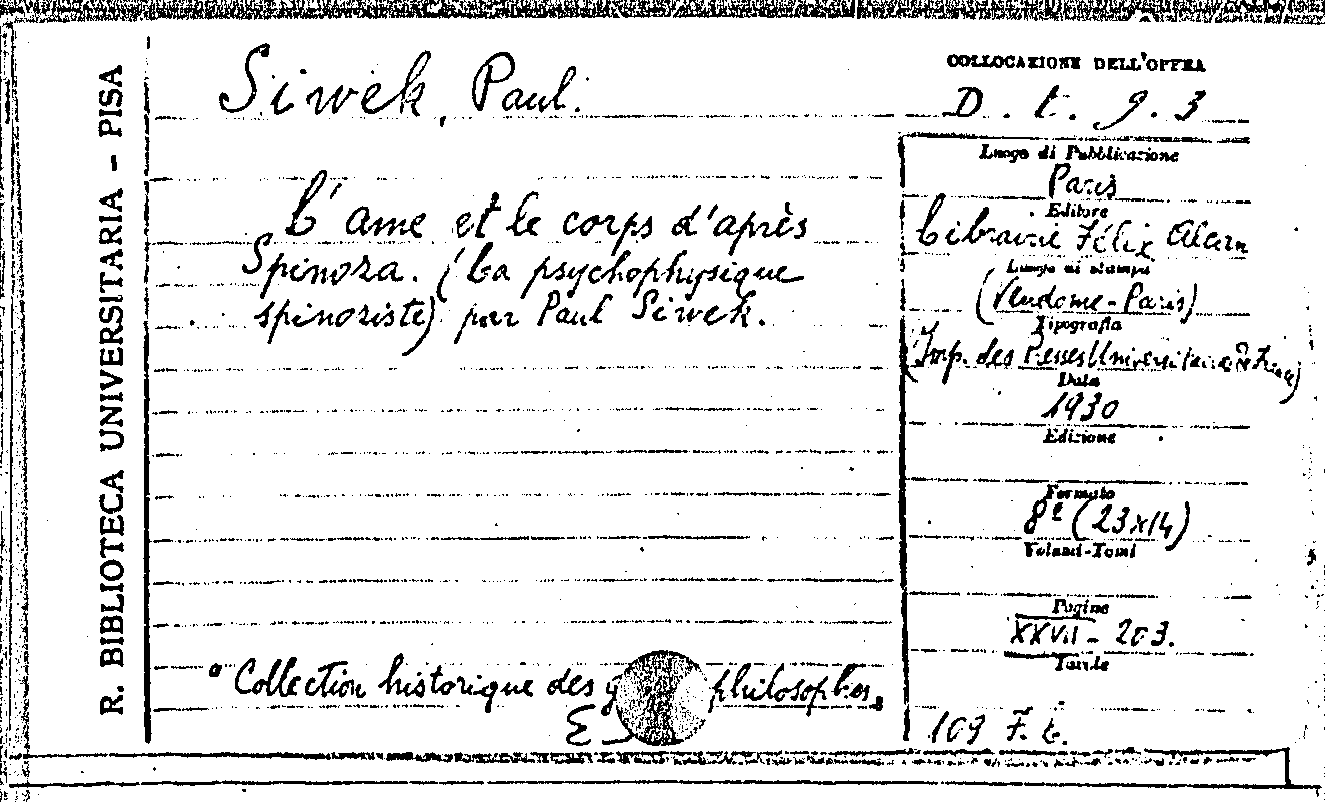 R. BIBLIOTECA UNIVERSITARIA - PISA
Siwek, Paul.
L'ame et le corps d'après
Spinoza. (La psychophysique
spinoziste) par Paul Siwek.
"Collection historique des g philosophes"
COLLOCAZIONE DELL'OPERA
D. t. 9. 3
Luogo di Pubblicazione
Paris
Editore
Librairie Félix Alcan
Luogo di stampa
(Vendome-Paris)
Tipografia
(Imp. des Presses Universitaires de France)
Data
1930
Edizione
Formato
8º (23x14)
Volumi-Tomi
Pagine
XXVII - 203.
Tavole
109 F. t.